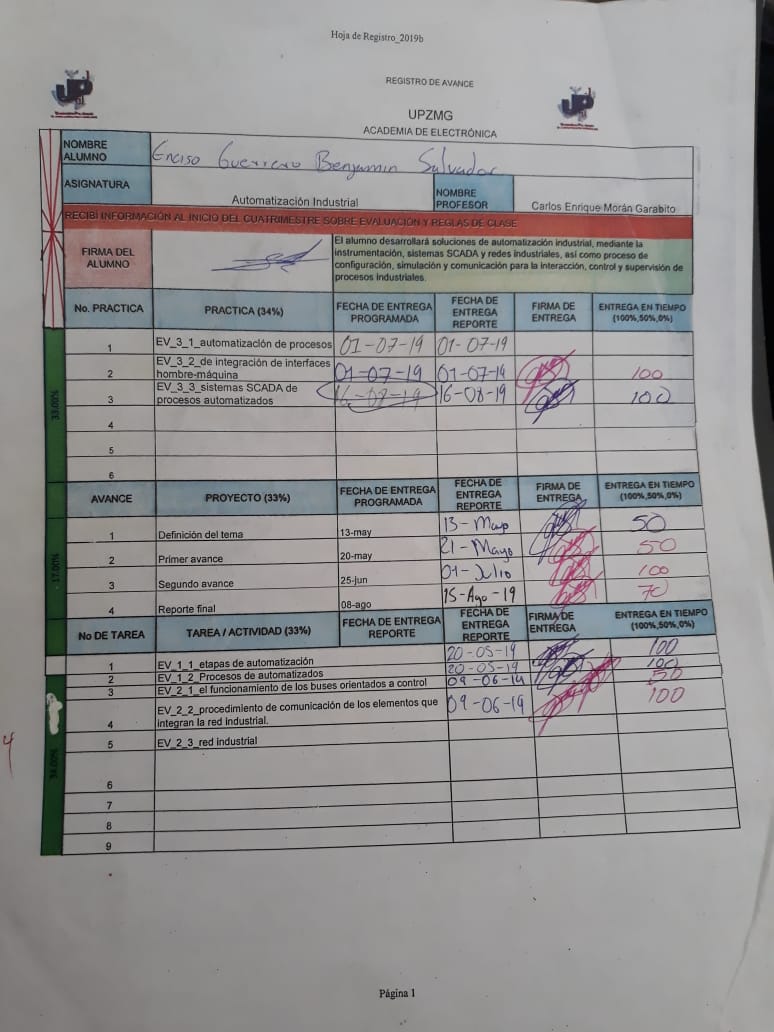 Hoja de Registro_2019b
REGISTRO DE AVANCE
UPZMG
ACADEMIA DE ELECTRÓNICA
NOMBRE ALUMNO Enciso Guerrero Benjamin Salvador
ASIGNATURA Automatización Industrial NOMBRE PROFESOR Carlos Enrique Morán Garabito
RECIBI INFORMACIÓN AL INICIO DEL CUATRIMESTRE SOBRE EVALUACIÓN Y REGLAS DE CLASE
FIRMA DEL ALUMNO
El alumno desarrollará soluciones de automatización industrial, mediante la
instrumentación, sistemas SCADA y redes industriales, así como proceso de
configuración, simulación y comunicación para la interacción, control y supervisión de
procesos industriales.
No. PRACTICA PRACTICA (34%) FECHA DE ENTREGA PROGRAMADA FECHA DE ENTREGA REPORTE FIRMA DE ENTREGA ENTREGA EN TIEMPO (100%,50%,0%)
33.00%
1 EV_3_1_automatización de procesos 01-07-19 01-07-19
2 EV_3_2_de integración de interfaces hombre-máquina 01-07-19 01-07-19 100
3 EV_3_3_sistemas SCADA de procesos automatizados 16-08-19 16-08-19 100
4
5
6
AVANCE PROYECTO (33%) FECHA DE ENTREGA PROGRAMADA FECHA DE ENTREGA REPORTE FIRMA DE ENTREGA ENTREGA EN TIEMPO (100%,50%,0%)
17.00%
1 Definición del tema 13-may 13-Mayo 50
2 Primer avance 20-may 21-Mayo 50
3 Segundo avance 25-jun 01-Julio 100
4 Reporte final 08-ago 15-Ago-19 70
No DE TAREA TAREA / ACTIVIDAD (33%) FECHA DE ENTREGA REPORTE FECHA DE ENTREGA REPORTE FIRMA DE ENTREGA ENTREGA EN TIEMPO (100%,50%,0%)
1 EV_1_1_etapas de automatización 20-05-19 100
2 EV_1_2_Procesos de automatizados 20-05-19 100
3 EV_2_1_el funcionamiento de los buses orientados a control 09-06-19 50
4 EV_2_2_procedimiento de comunicación de los elementos que integran la red industrial. 09-06-19 100
5 EV_2_3_red industrial
6
7
8
9
Página 1